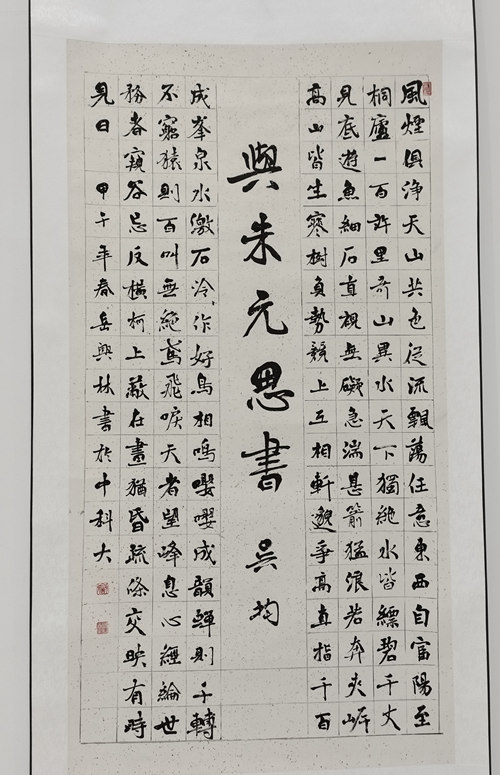 風煙俱浄天山共色從流飄蕩任意東西自富陽至
桐廬一百許里奇山異水天下獨絶水皆縹碧千丈
見底遊魚細石直視無礙急湍甚箭猛浪若奔夾岸
高山皆生寒樹負勢競上互相軒邈爭高直指千百
與朱元思書 吳均
成峯泉水激石冷作好鳥相鳴嚶嚶成韻蟬則千轉
不窮猿則百叫無絶鳶飛唳天者望峰息心經綸世
務者窺谷忘反横柯上蔽在晝猶昏疏條交映有時
見日 甲午年春岳興林書於中科大